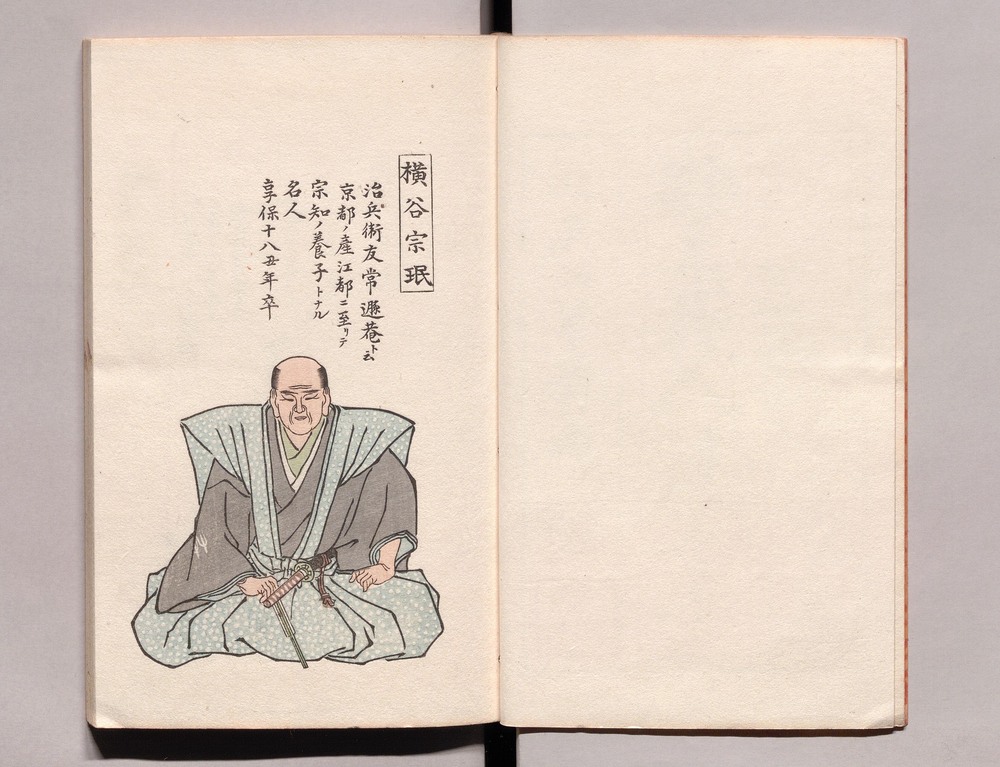 横谷宗珉
治兵衛友常遯菴ト云
京都ノ産江都ニ至リテ
宗知ノ養子トナル
名人
享保十八丑年卒